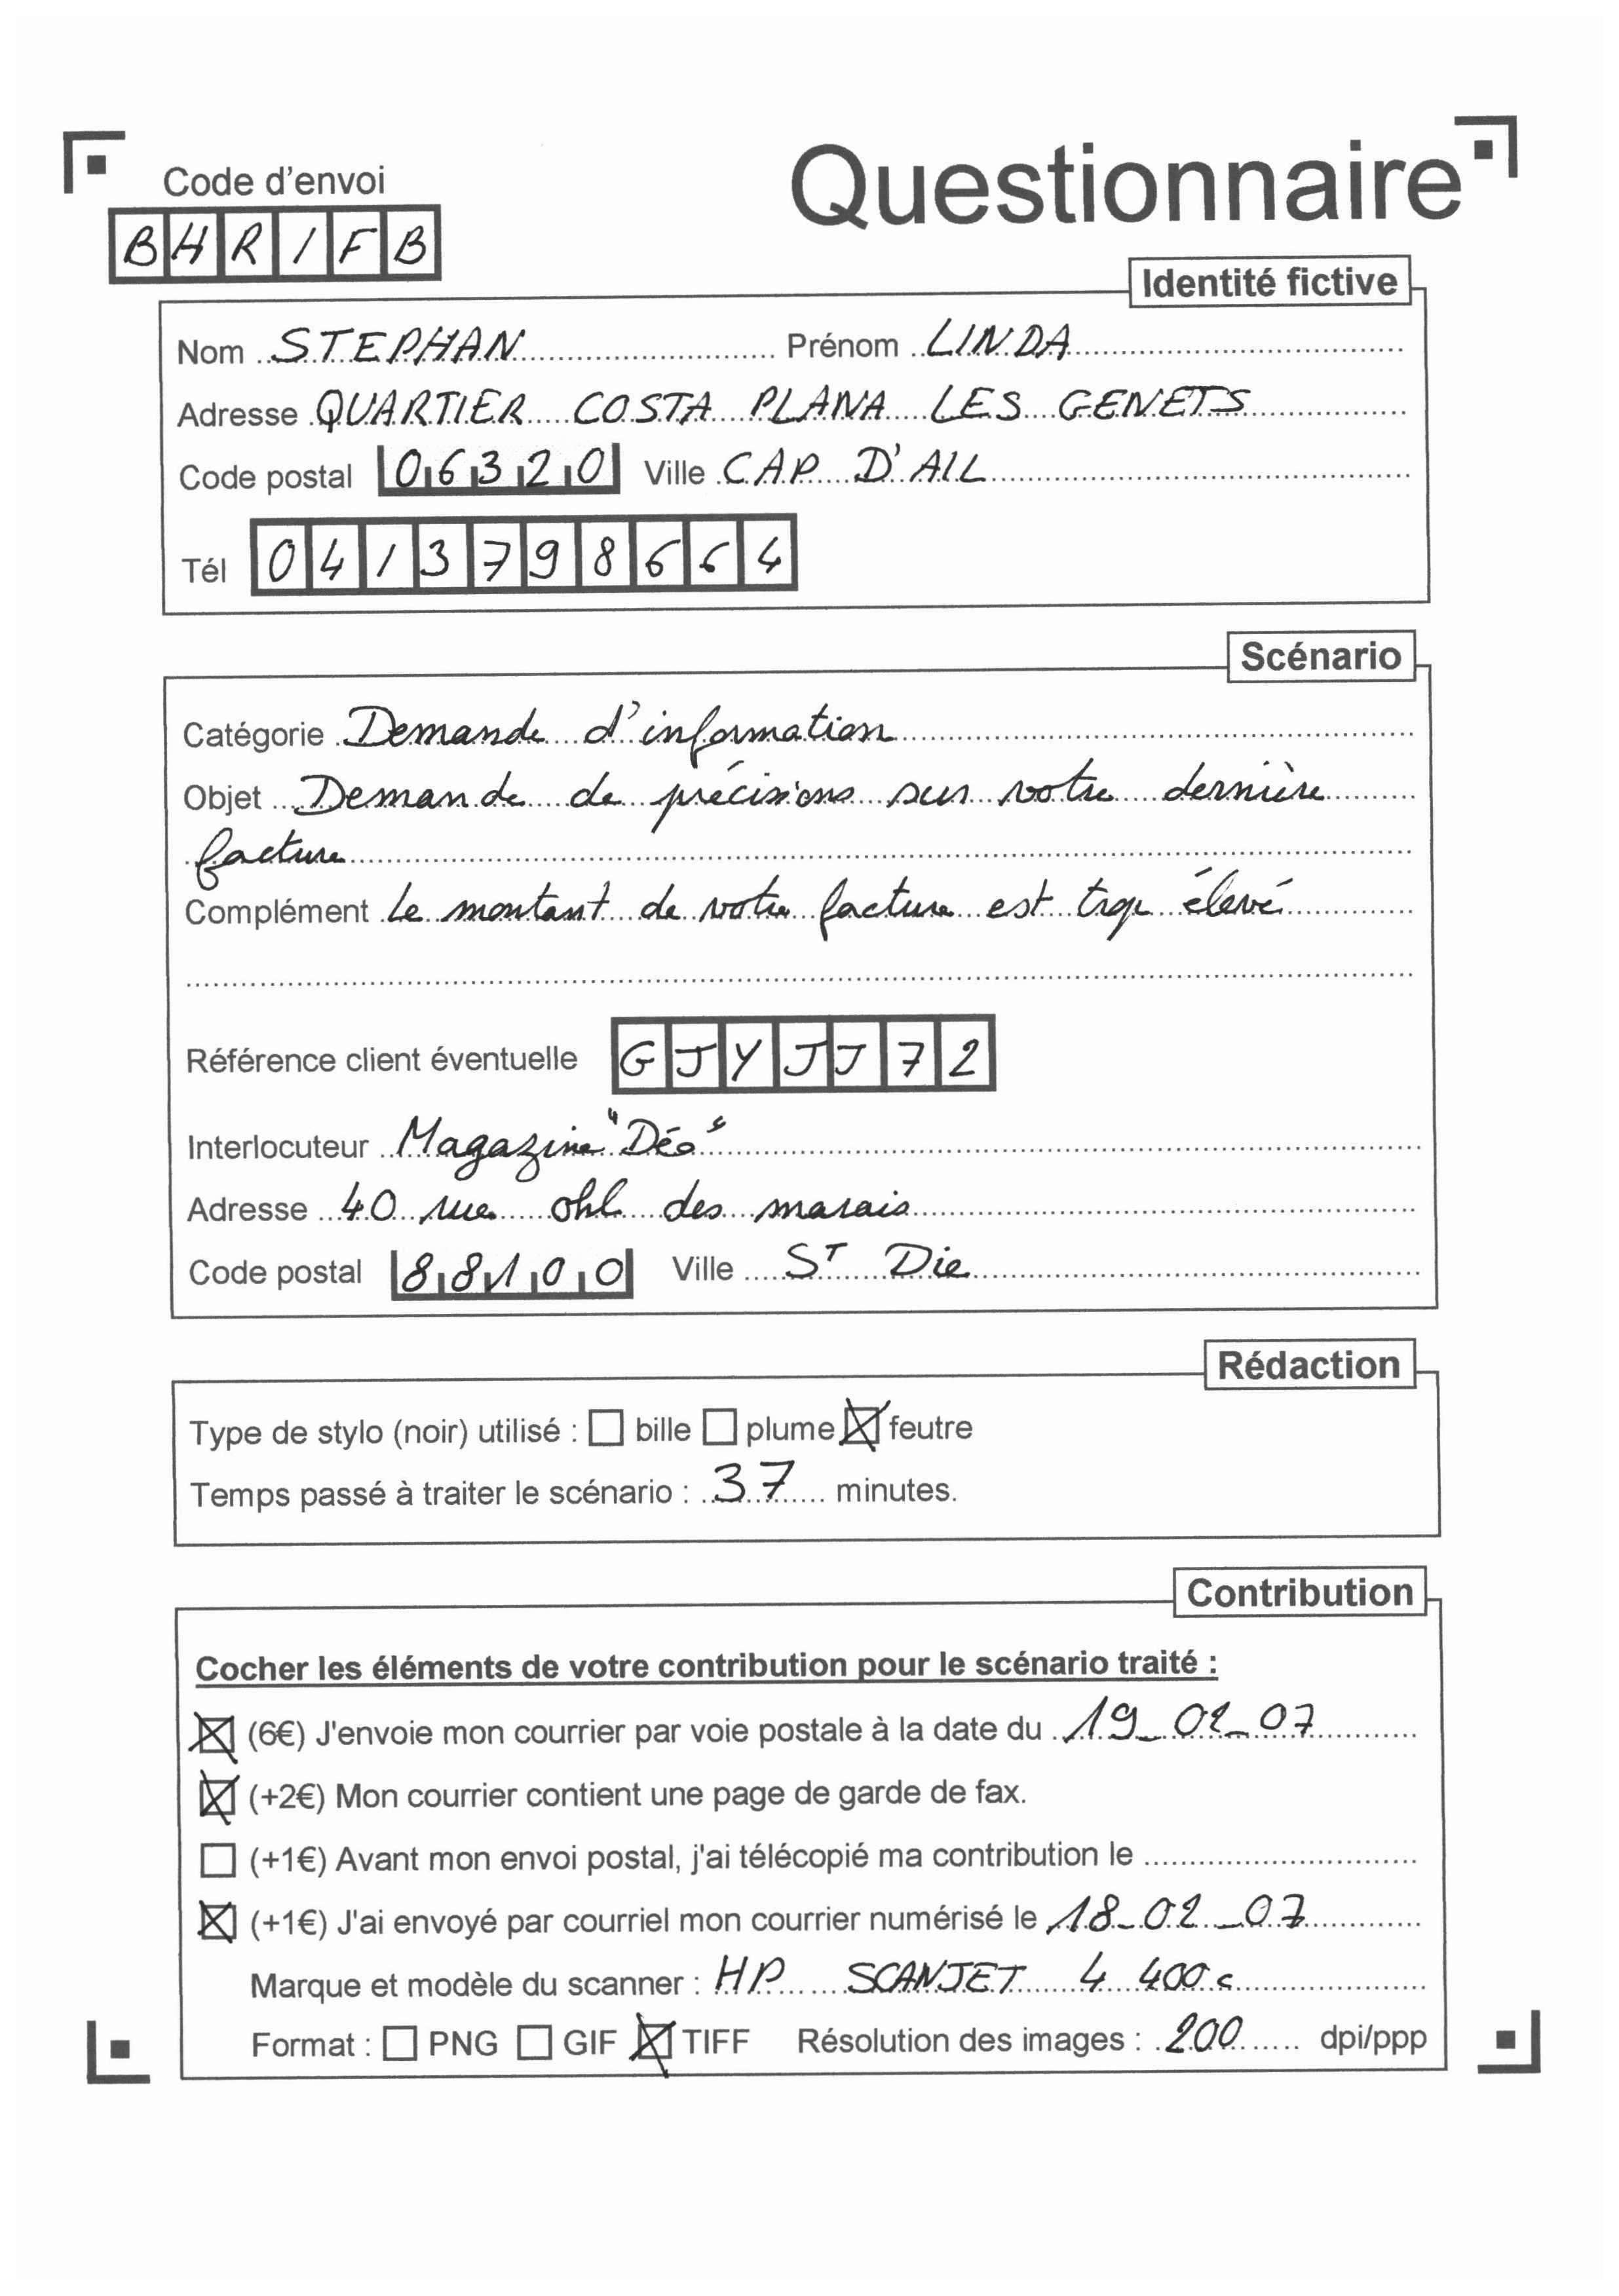 Code d'envoi
Questionnaire
BHRIFB
Identité fictive
Nom STEPHAN Prénom LINDA
Adresse QUARTIER COSTA PLANA LES GENETS
Code postal 06320 Ville CAP D'AIL
Tél 0413798664
Scénario
Catégorie Demande d'information
Objet Demande de précisions sur votre dernière
facture
Complément Le montant de votre facture est trop élevé
Référence client éventuelle GJYJJ72
Interlocuteur Magazine "Déo"
Adresse 40 rue ohl des marais
Code postal 88100 Ville ST Die
Rédaction
Type de stylo (noir) utilisé : bille plume feutre
Temps passé à traiter le scénario : 37 minutes.
Contribution
Cocher les éléments de votre contribution pour le scénario traité :
(6€) J'envoie mon courrier par voie postale à la date du 19_02_07
(+2€) Mon courrier contient une page de garde de fax.
(+1€) Avant mon envoi postal, j'ai télécopié ma contribution le
(+1€) J'ai envoyé par courriel mon courrier numérisé le 18_02_07
Marque et modèle du scanner : HP SCANJET 4400c
Format : PNG GIF TIFF Résolution des images : 200 dpi/ppp